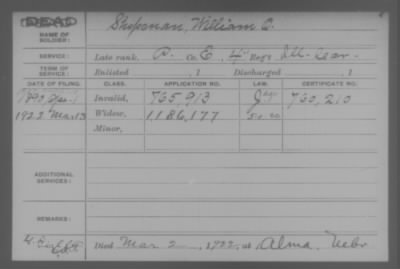 DEAD
NAME OF SOLDIER: Shipman, William C.
SERVICE: Late rank, P. Co. E, 4" Reg't Ill. Cav.
TERM OF SERVICE: Enlisted , 1 Discharged , 1
DATE OF FILING. CLASS. APPLICATION NO. LAW. CERTIFICATE NO.
1890 Invalid, 765913 760,210
1922 Mar 13 Widow, 1186,177
Minor,
ADDITIONAL SERVICES:
REMARKS:
Died Mar 2, 1922, at Alma, Nebr